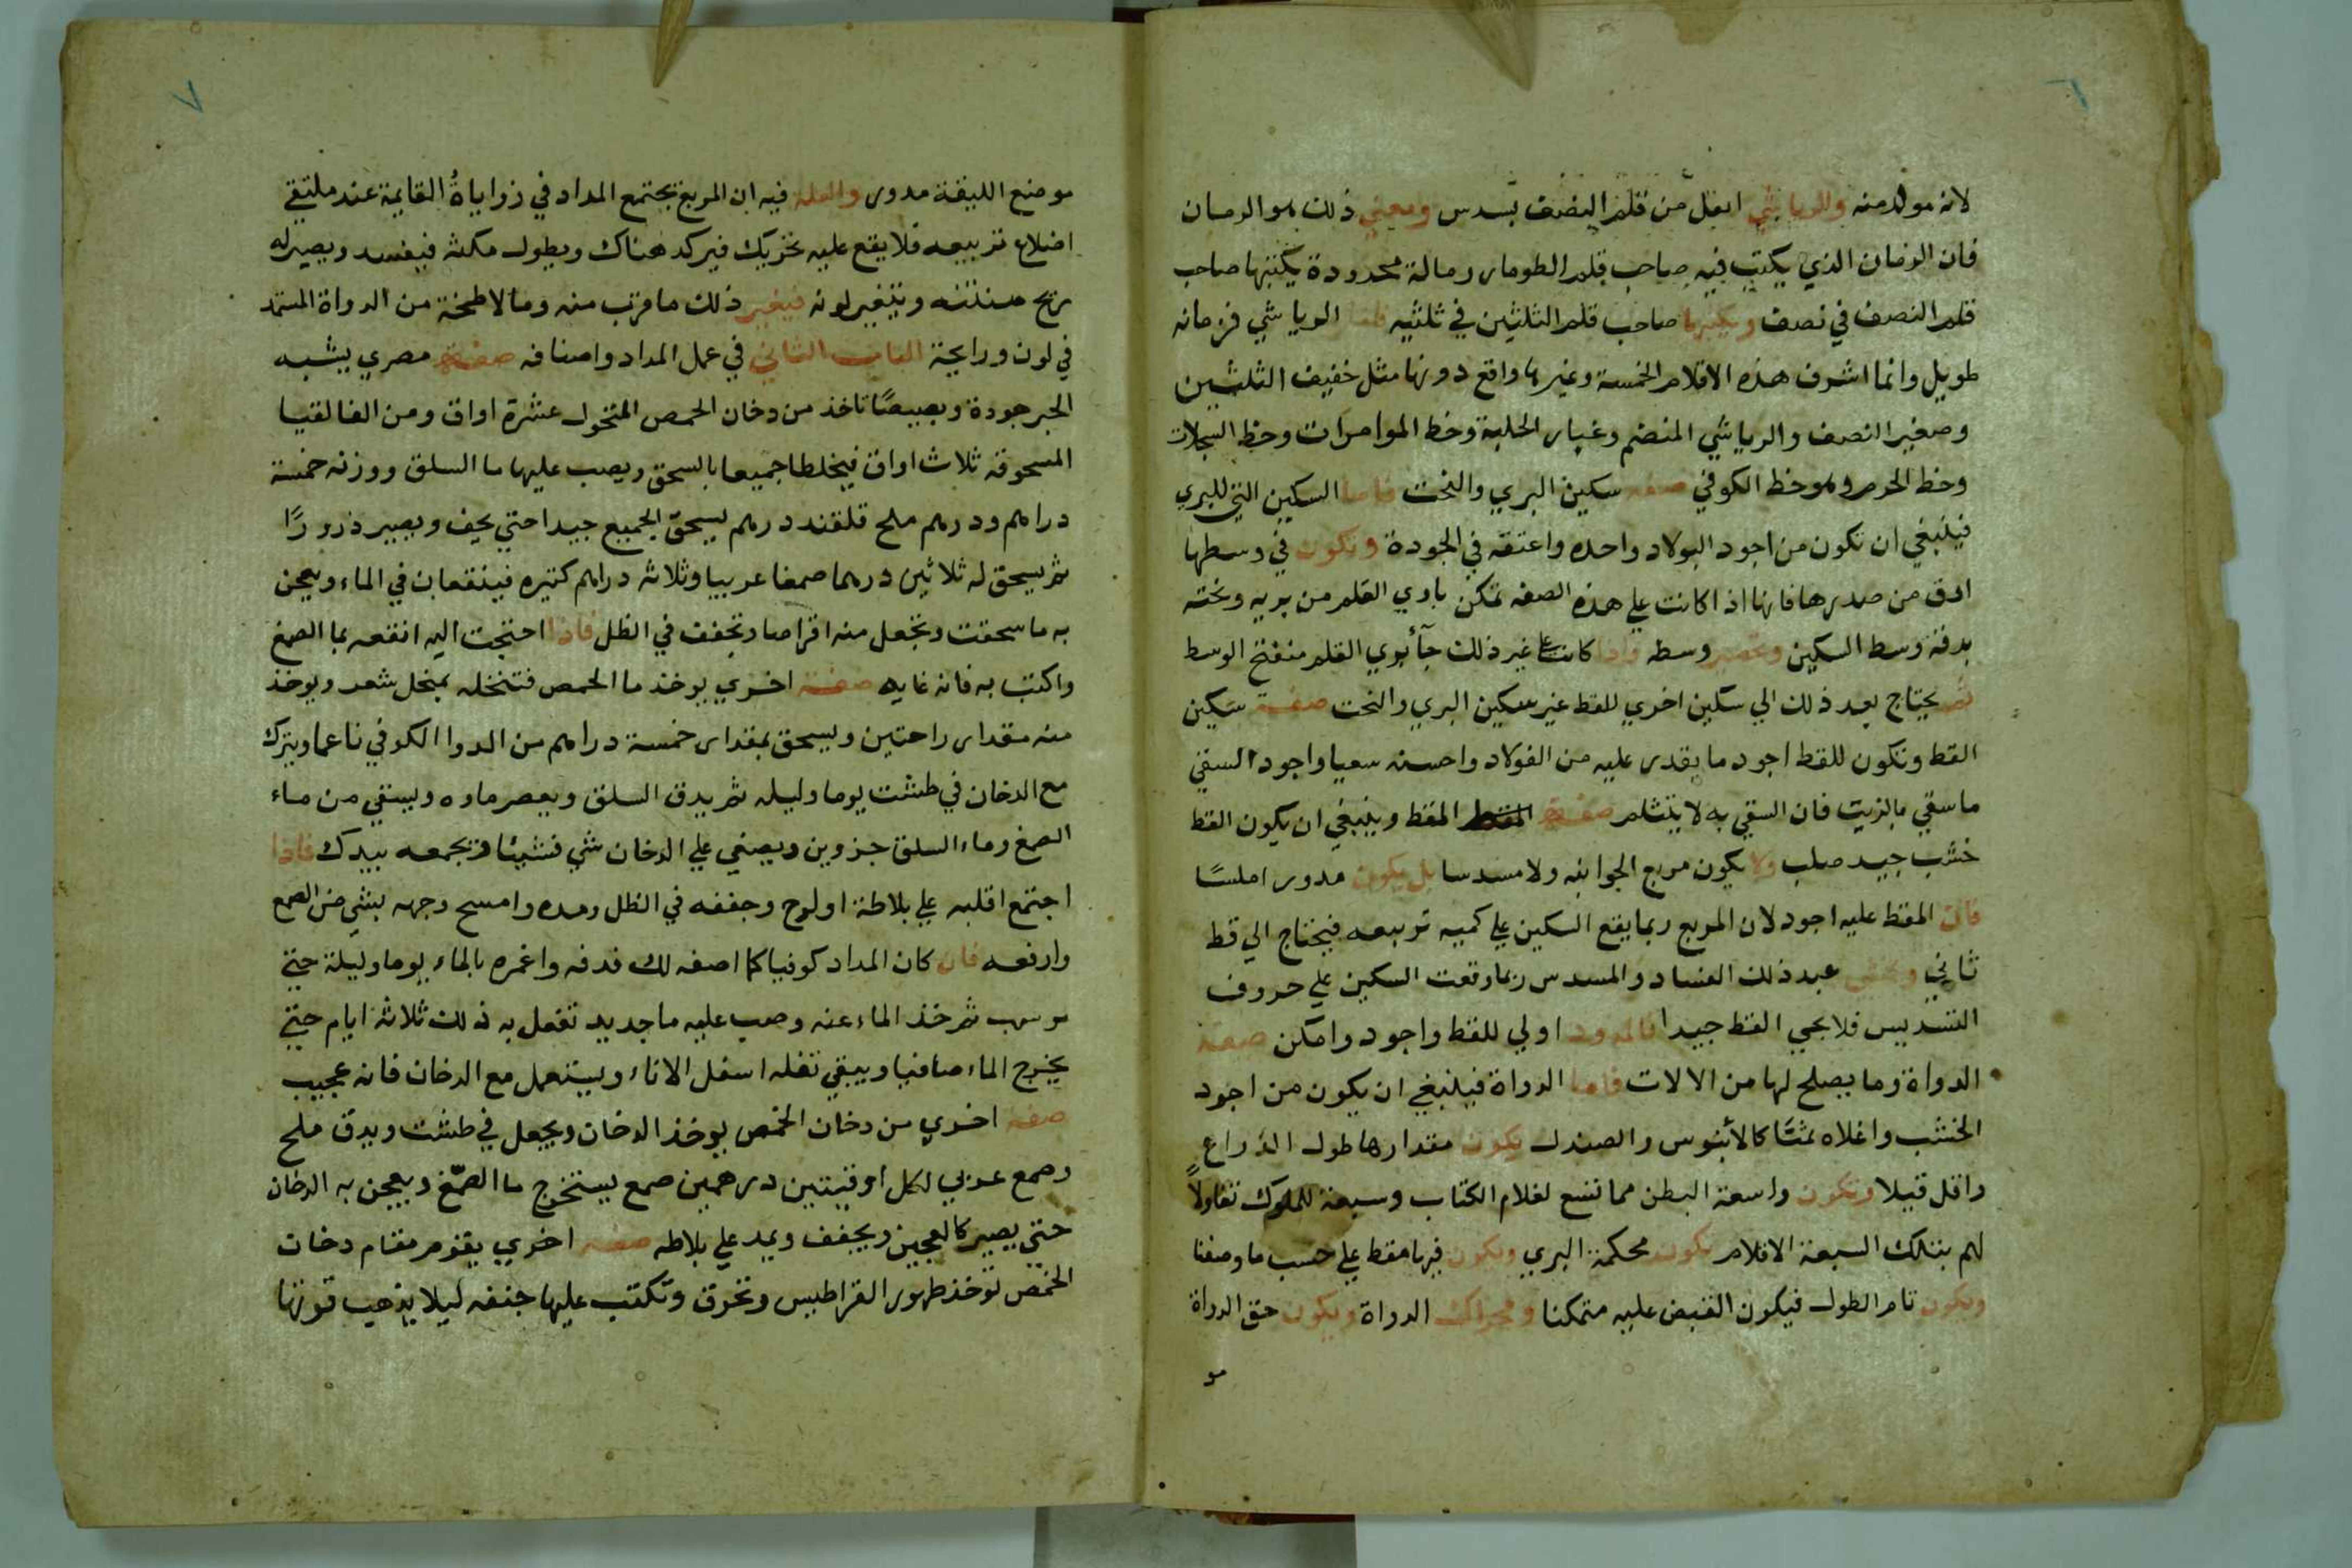 ٦
لانه مولد منه وللرياشي اثقل من قلم النصف بسدس ومعني ذلك هو الرمان
فان الزمان الذي يكتب فيه صاحب قلم الطومار رسالة محدودة يكتبها صاحب
قلم النصف في نصف صاحب قلم الثلثين في ثلثيه الرياشي فزمانه
طويل وانما اشرف هذه الاقلام الخمسة وغيرها واقع دونها مثل خفيف الثلثين
وصغير النصف والرياشي المنضم وغبار الحلبة وخط الموامرات وخط السجلات
وخط الحرم وهو خط الكوفي صفه سكين البري والنحت فاما السكين التي للبري
فينبغي ان تكون من اجود البولاد واحده واعتقه في الجودة وتكون في وسطها
ادق من صدرها فانها اذا كانت علي هذه الصفه تمكن باري القلم من بريه ونحته
بدقة وسط السكين وسطه فاذا كانت علي غير ذلك جآ بري القلم منفتح الوسط
ثم يحتاج بعد ذلك الي سكين اخري للقط غير سكين البري والنحت صفة سكين
القط وتكون للقط اجود ما يقدر عليه من الفولاد واحسنه سعيا واجود السقي
ما سقي بالزيت فان السقي به لا يتثلم صفة المقط المقط وينبغي ان يكون القط
خشب جيد صلب ولا يكون مربع الجوانبه ولا مسدسا بل يكون مدور املسًا
فان المقط عليه اجود لان المربع ربما يقع السكين علي كميه تربيعه فيحتاج الي قط
ثاني عند ذلك الفساد والمسدس ربما وقعت السكين علي حروف
التسديس فلا يجي القط جيدا فالمدور اولي للقط واجود وامكن صفة
الدواة وما يصلح لها من الالات فاما الدواة فينبغي ان يكون من اجود
الخشب واغلاه ثمنًا كالأبنوس والصندل يكون مقدارها طول الذراع
واقل قيلا وتكون واسعة البطن مما تسع لغلام الكتاب وسبعة للملوك تفاولاً
لهم بتلك السبعة الاقلام تكون محكمة البري ويكون فيها مقط علي حسب ما وصفنا
ويكون تام الطول فيكون القبض عليه متمكنا ومحراك الدواة ويكون حق الدواة
مو
٧
موضع الليقة مدور والعلة فيه ان المربع يجتمع المداد في زواياةُ القايمة عند ملتقي
اضلاع تربيعه فلا يقع عليه تحريك فيركد هناك ويطول مكثه فيفسد ويصير له
ريح منتنه ويتغير لونه فيغير ذلك ما قرب منه وما لاطخة من الدواة المتمد
في لون ورايحة الباب الثاني في عمل المداد واصنافه صفة مصري يشبه
الحبر جودة وبصيصًا تاخذ من دخان الحمص المنخول عشرة اواق ومن الفالقتيا
المسحوقه ثلاث اواق فيخلطا جميعا بالسحق ويصب عليها ما السلق ووزنه خمسة
دراهم ودرهم ملح قلقند درهم يسحق الجميع جيدا حتي يجف ويصير ذرورًا
ثم يسحق له ثلاثين درهما صمغا عربيا وثلاثه دراهم كثيره فينقعان في الماء ويعجن
به ما سحقت وتجعل منه اقراصا وتجفف في الظل فاذا احتجت اليه انقعه بما الصمغ
واكتب به فانه غايه صفة اخري يوخذ ما الحمص فتنخله بمنخل شعر ويوخذ
منه مقدار راحتين ويسحق بمقدار خمسة دراهم من الدوا الكوفي ناعما ويترك
مع الدخان في طشت يوما وليله ثم يدق السلق ويعصر ماوه ويستقي من ماء
الصمغ وماء السلق جزوين ويصفي علي الدخان شي فشيئا وتجمعه بيدك فاذا
اجتمع اقلبه علي بلاطة او لوح وجففه في الظل ومده وامسح وجهه بشي من الصمع
وارفعه فان كان المداد كوفيا كما اصفه لك فدقه واغمره بالماء يوما وليلة حتي
يرسب ثم خذ الماء عنه وصب عليه ما جديد تفعل به ذلك ثلاثة ايام حتي
يخرج الماء صافيا ويبقي ثفله اسفل الاناء ويستعمل مع الدخان فانه عجيب
صفه اخري من دخان الحمص يوخذ الدخان ويجعل في طشت ويدق ملح
وصمع عربي لكل اوقيتين درهمين صمع يستخرج ما الصمّغ ويعجن به الدخان
حتي يصير كالعجين ويجفف ويمد علي بلاطه صفه اخري يقوم مقام دخان
الحمص توخذ طهور القراطيس وتحرق وتكتب عليها جففه ليلا يذهب قوتها